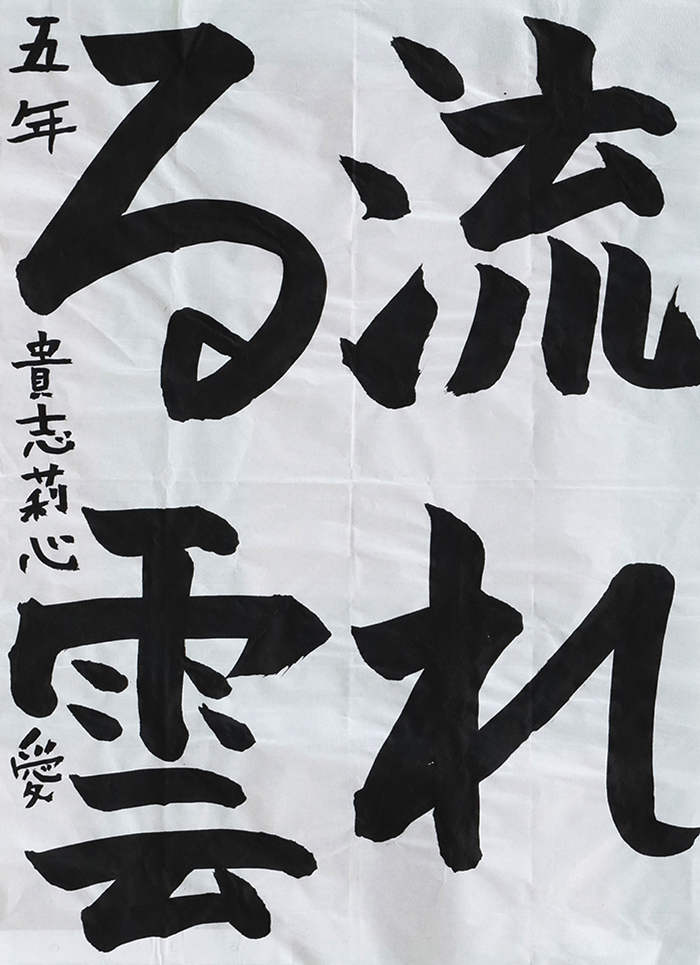 流れ
る雲
五年 貴志莉心愛